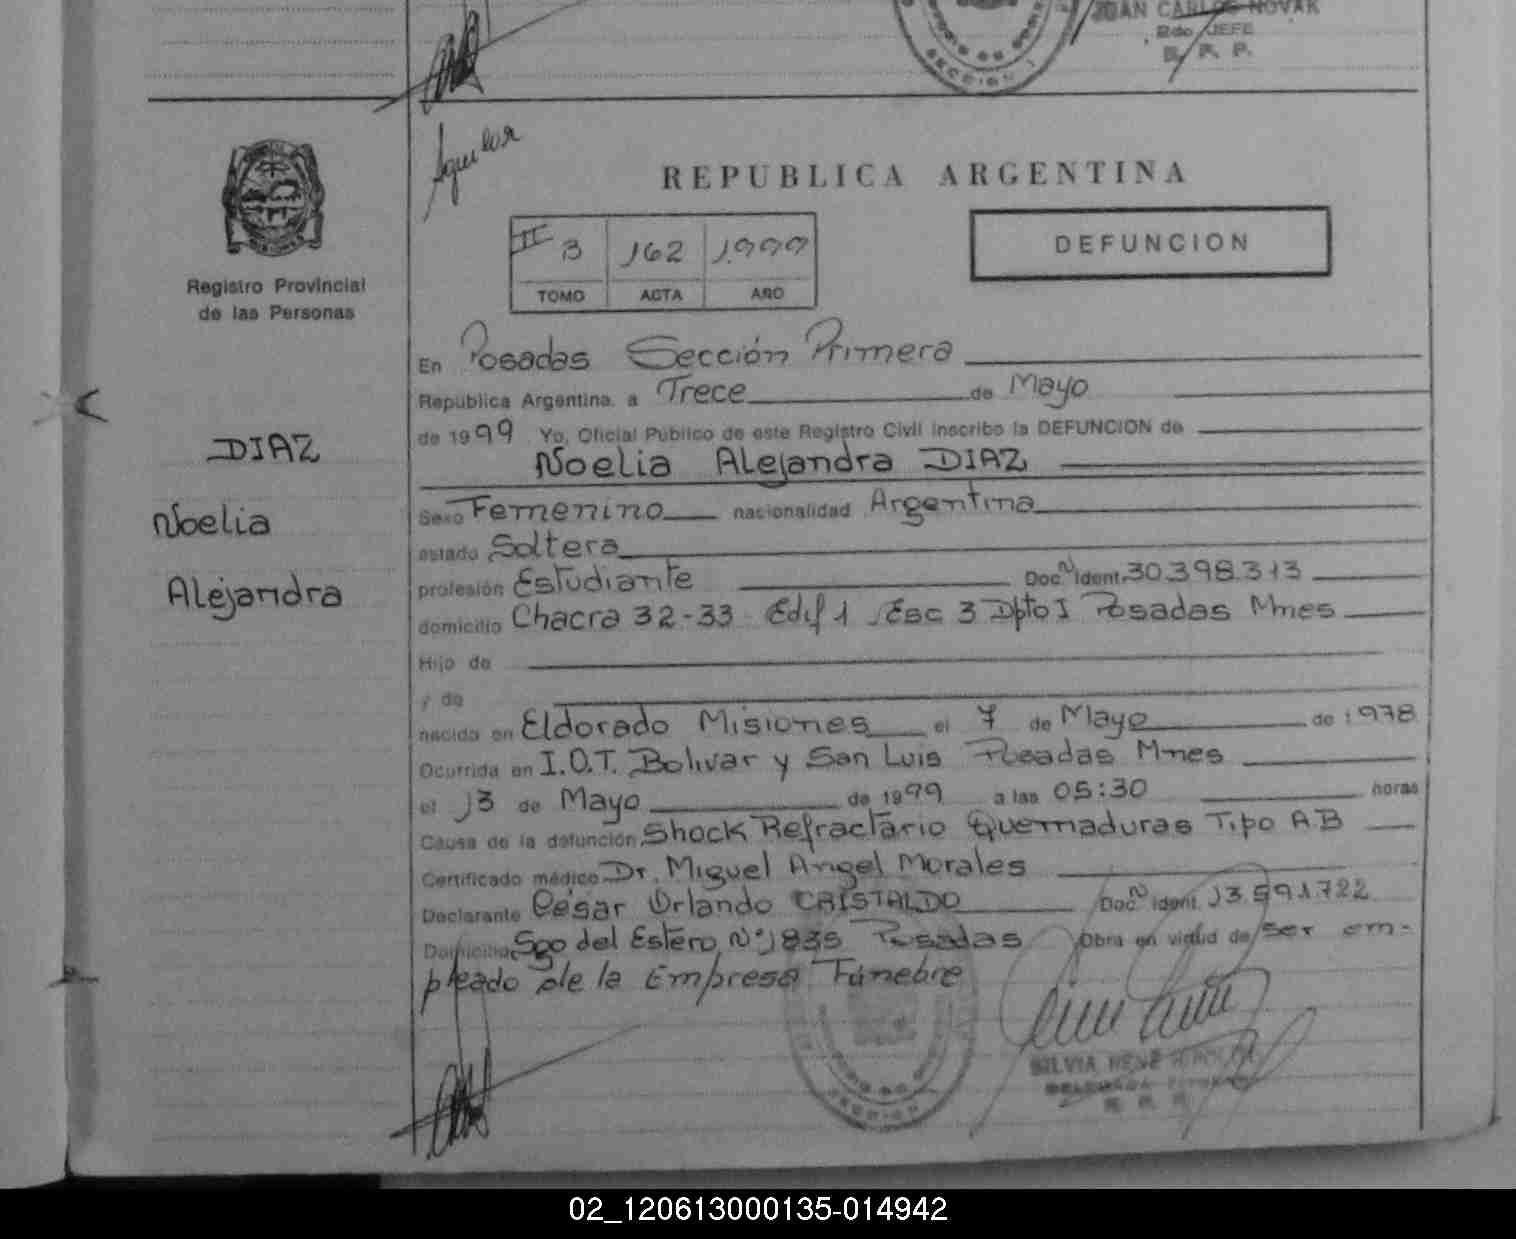 JUAN CARLOS NOVAK
2do JEFE
R. P. P.
SECCION 1
Aguilar
REPUBLICA ARGENTINA
II 3 162 1.999
TOMO ACTA AÑO
DEFUNCION
Registro Provincial
de las Personas
En Posadas Sección Primera
República Argentina, a Trece de Mayo
de 1999 Yo, Oficial Público de este Registro Civil inscribo la DEFUNCION de
Noelia Alejandra DIAZ
DIAZ
Noelia
Alejandra
Sexo Femenino nacionalidad Argentina
estado Soltera
profesión Estudiante Doc. Ident. 30.398.313
domicilio Chacra 32-33 Edif 1 Esc 3 Dpto I Posadas Mnes
Hijo de
y de
nacido en Eldorado Misiones el 7 de Mayo de 1.978
Ocurrida en I.O.T. Bolivar y San Luis Posadas Mnes
el 13 de Mayo de 1999 a las 05:30 horas
Causa de la defunción Shock Refractario Quemaduras Tipo A.B
Certificado médico Dr. Miguel Angel Morales
Declarante César Orlando CRISTALDO Doc. Ident. 13.591.722
Domicilio Sgo del Estero Nº 1835 Posadas Obra en virtud de ser em-
pleado de la Empresa Fúnebre
SILVIA RENE
SECCION 1
02_120613000135-014942